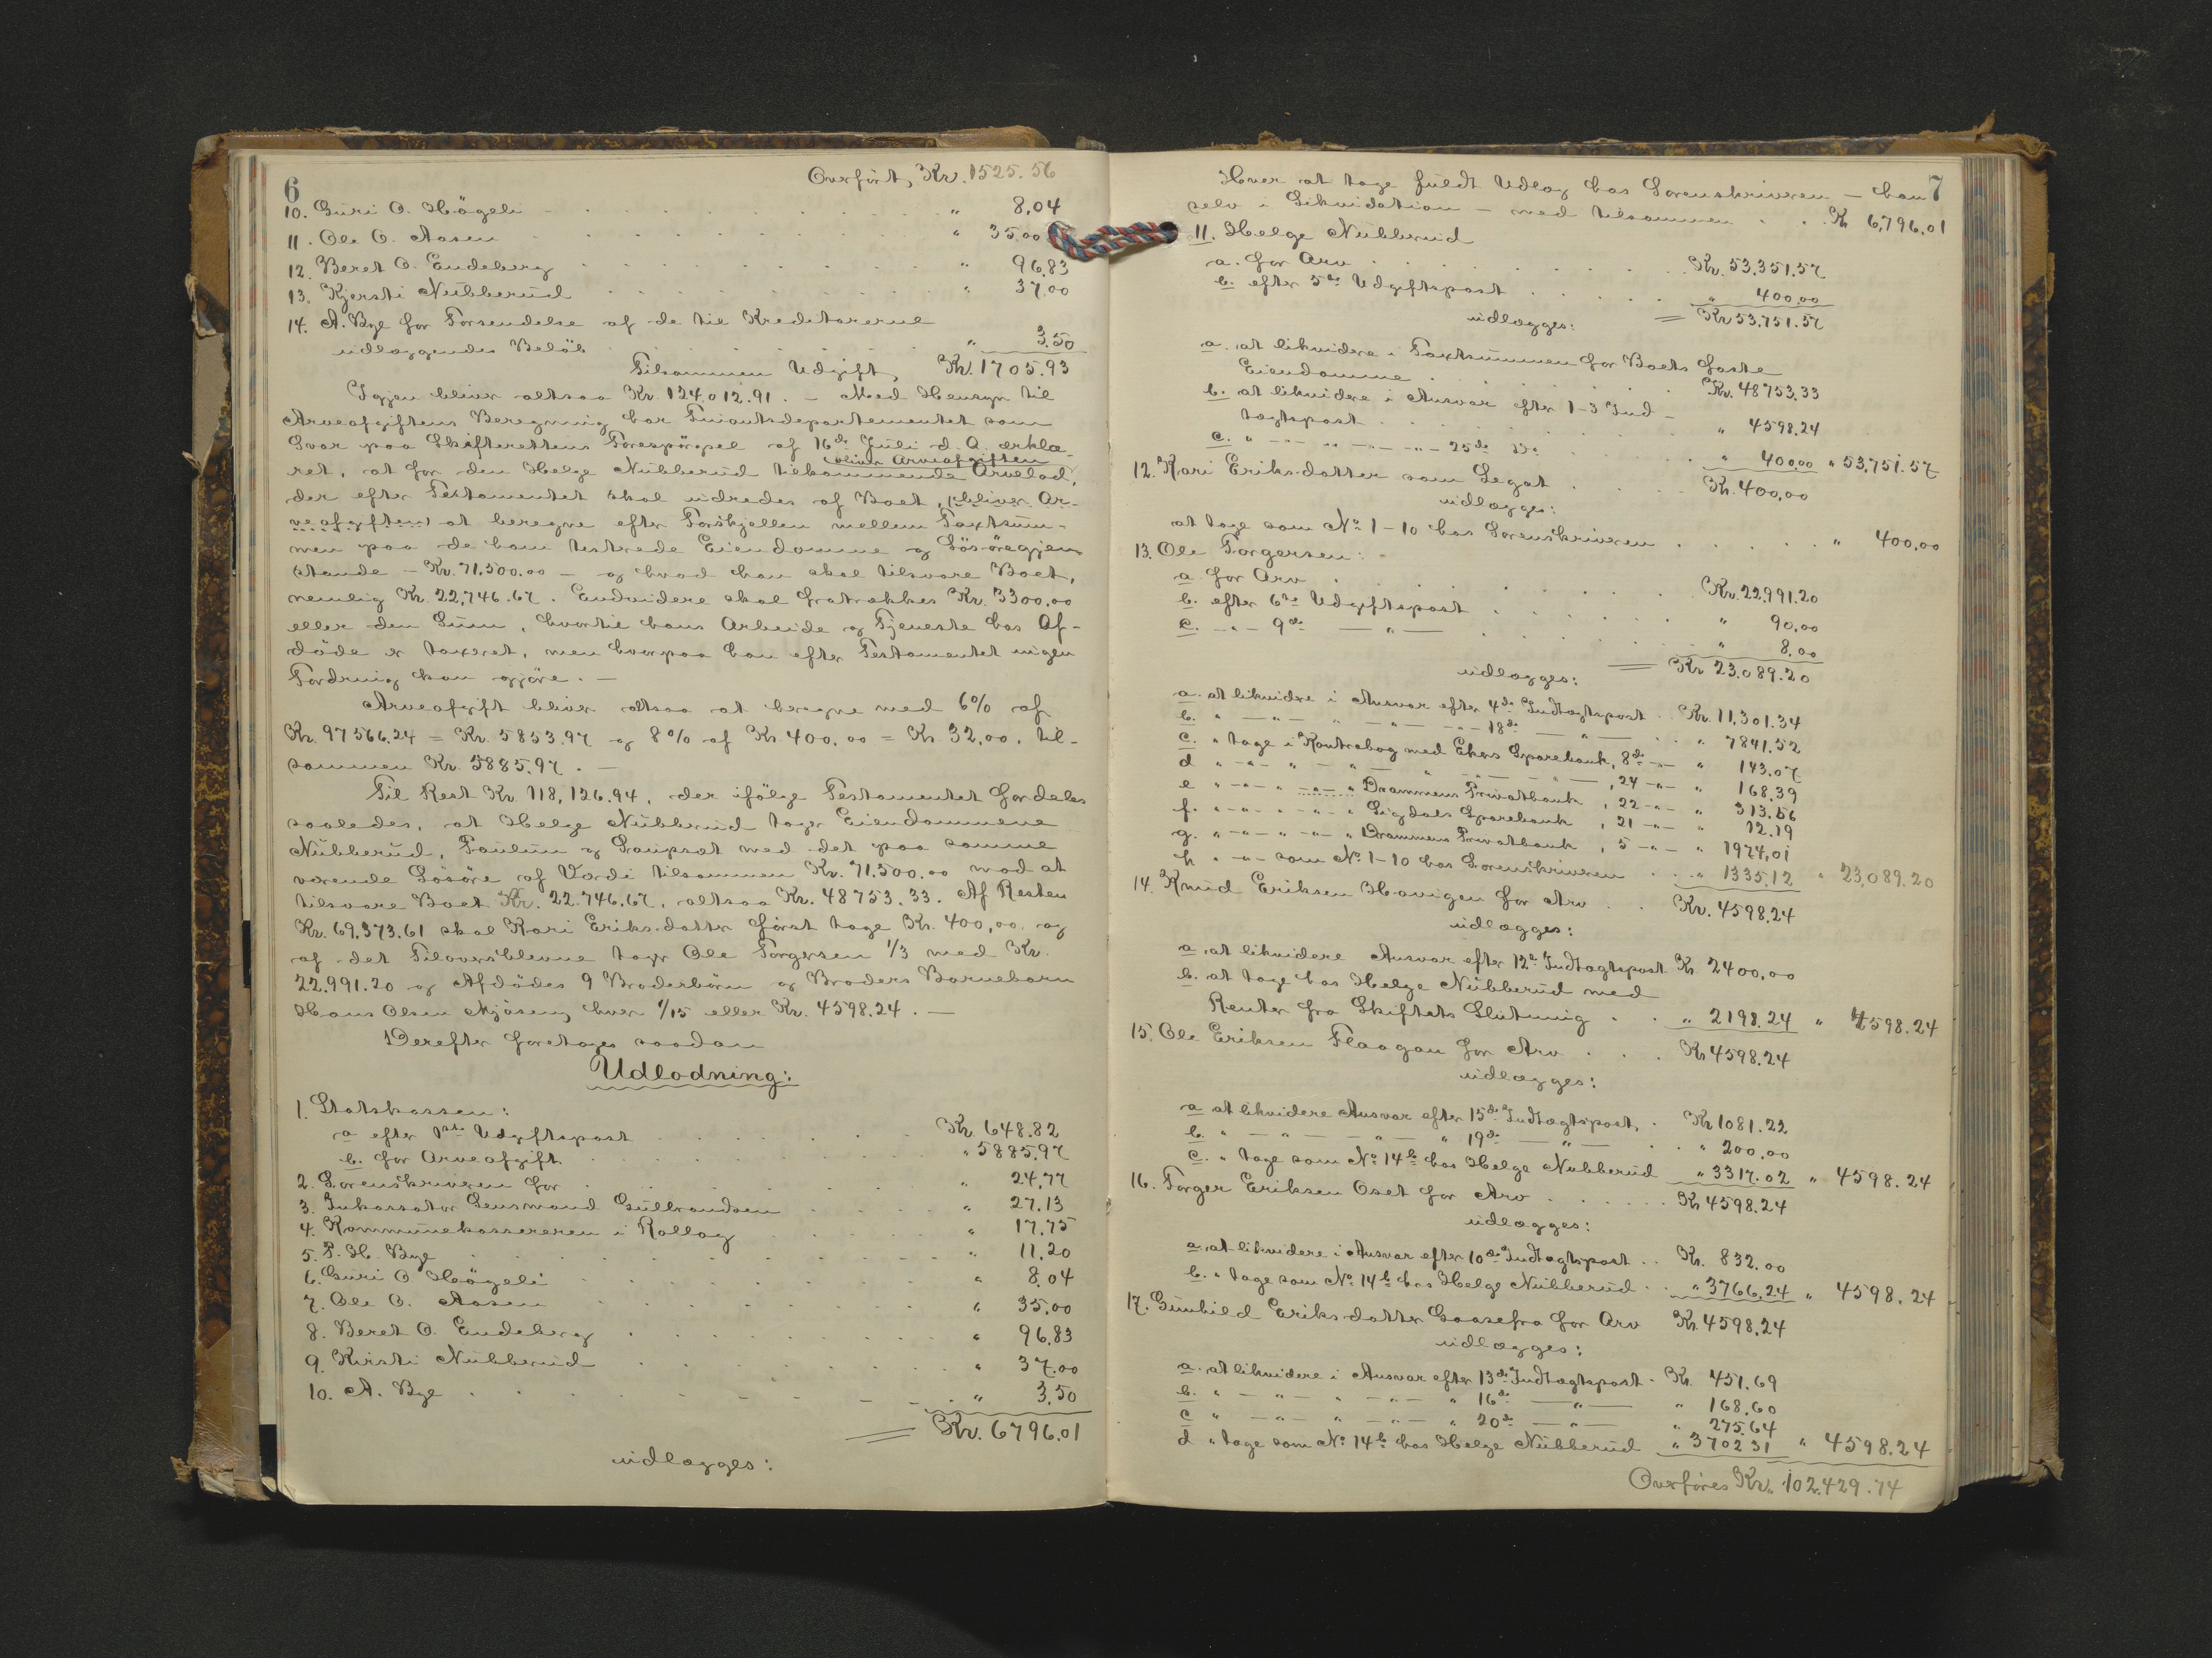 6
Overført, Kr. 1525.56
10. Guri O. Högeli " 8,04
11. Ole O. Aasen " 35.00
12. Beret O. Endeberg " 96.83
13. Kjersti Nubberud " 37.00
14. A. Bye for Forsendelse af de til Kreditorerne
udlæggendes Beløb " 3.50
Tilsammen Udgift, Kr. 1705.93
Igjen bliver altsaa Kr. 124.012.91. – Med Hensyn til
Arveafgiftens Beregning har Finantsdepartementet som
Svar paa Skifterettens Forespörgsel af 16de Juli d. A. erklæ-
bliver Arveafgiften
ret, at for den Helge Nubberud tilkommende Arvelod,
der efter Testamentet skal udredes af Boet, (bliver Ar-
veafgiften) at beregne efter Forskjellen mellem Taxtsum-
men paa de ham testerede Eiendomme og Lösöregjen-
stande – Kr. 71.500.00 – og hvad han skal tilsvare Boet,
nemlig Kr. 22,746.67. Endvidere skal fratrækkes Kr. 3300,00
eller den Sum, hvortil hans Arbeide og Tjeneste hos Af-
døde er taxeret, men hvorpaa han efter Testamentet ingen
Fordring kan gjöre. –
Arveafgift bliver altsaa at beregne med 6% af
Kr. 97566.24 = Kr. 5853.97 og 8% af Kr. 400.00 = Kr. 32,00, til-
sammen Kr. 5885,97. –
Til Rest Kr. 118,126.94, der ifölge Testamentet fordeles
saaledes, at Helge Nubberud tager Eiendommene
Nubberud, Paulun og Laupsat med det paa samme
værende Lösöre af Værdi tilsammen Kr. 71.500.00 mod at
tilsvare Boet Kr. 22.746.67, altsaa Kr. 48753.33. Af Resten
Kr. 69.373.61 skal Kari Eriksdatter først tage Kr. 400,00 og
af det Tiloversblevne tager Ole Torgersen 1/3 med Kr.
22.991.20 og Afdödes 9 Broderbörn og Broders Barnebarn
Hans Olsen Mjösen, hver 1/15 eller Kr. 4598.24. –
Derefter foretages saadan
Udlodning:
1. Statskassen:
a efter 1ste Udgiftspost Kr. 648.82
b. for Arveafgift " 5885.97
2. Sorenskriveren for " 24,77
3. Inkassator Lensmand Gulbrandsen " 27.13
4. Kommunekassereren i Rollag " 17.75
5. P. H. Bye " 11.20
6. Guri O Högeli " 8.04
7. Ole O. Aasen " 35.00
8. Beret O. Endeberg " 96.83
9. Kirsti Nubberud " 37.00
10. A. Bye " 3.50
Kr. 6796.01
udlægges:
7
Hver at tage fuldt Udlæg hos Sorenskriveren – han
selv i Likvidation – med tilsammen Kr 6,796.01
11. Helge Nubberud
a. for Arv Kr. 53.351.57
b. efter 5te Udgiftspost " 400,00
udlægges: = Kr 53.751.57
a. at likvidere i Taxtsummen for Boets faste
Eiendomme Kr. 48753,33
b. at likvidere i Ansvar efter 1-3 Ind-
tægtspost " 4598.24
c. " – " – " – " – 25de Do " 400.00 " 53,751.57
12. Kari Eriksdatter som Legat Kr. 400,00
udlægges:
at tage som No 1-10 hos Sorenskriveren " 400,00
13. Ole Torgersen:
a. for Arv Kr. 22991.20
b. efter 6te Udgiftspost " 90,00
c. – " – 9de – " – " 8.00
udlægges: = Kr 23.089.20
a. at likvidere i Ansvar efter 4de Indtægtspost Kr. 11,301.34
b. " – " – " – " – 18de – " – " 7841.52
c. " tage i Kontrabog med Ekers Sparebank, 8de – " – " 143.07
d " – " – " – " – " – " – , 24 – " – " 168.39
e " – " – " – " – " Drammens Privatbank , 22 – " – " 313.56
f. " – " – " – " – " Sigdals Sparebank , 21 – " – " 12.19
g. " – " – " – " – " Drammens Privatbank , 5 – " – " 1974.01
h " – " – som No 1-10 hos Sorenskriveren " 1335.12 " 23,089.20
14. Knud Eriksen Havigen for Arv Kr. 4598.24
udlægges:
a. at likvidere Ansvar efter 12te Indtægtspost Kr 2400,00
b. at tage hos Helge Nubberud med
Renter fra Skiftets Slutning " 2198.24 " 4598.24
15. Ole Eriksen Flaagan for Arv Kr 4598.24
udlægges:
a at likvidere Ansvar efter 15de Indtægtspost Kr 1081.22
b. " – " – " – " 19de – " – " 200,00
c. " tage som No 14b hos Helge Nubberud " 3317.02 " 4598.24
16. Torger Eriksen Oset for Arv Kr 4598.24
udlægges:
a. at likvidere i Ansvar efter 10de Indtægtspost Kr. 832.00
b. " tage som No 14b hos Helge Nubberud " 3766,24 " 4598.24
17. Gunhild Eriksdatter Gaasefra for Arv Kr. 4598.24
udlægges:
a. at likvidere i Ansvar efter 13de Indtægtspost Kr. 451.69
b. " – " – " – " – " 16de – " – " 168.60
c " – " – " – " – " 20de – " – " 275.64
d " tage som No 14b hos Helge Nubberud " 3702 31 " 4598.24
Overføres Kr. 102.429.74